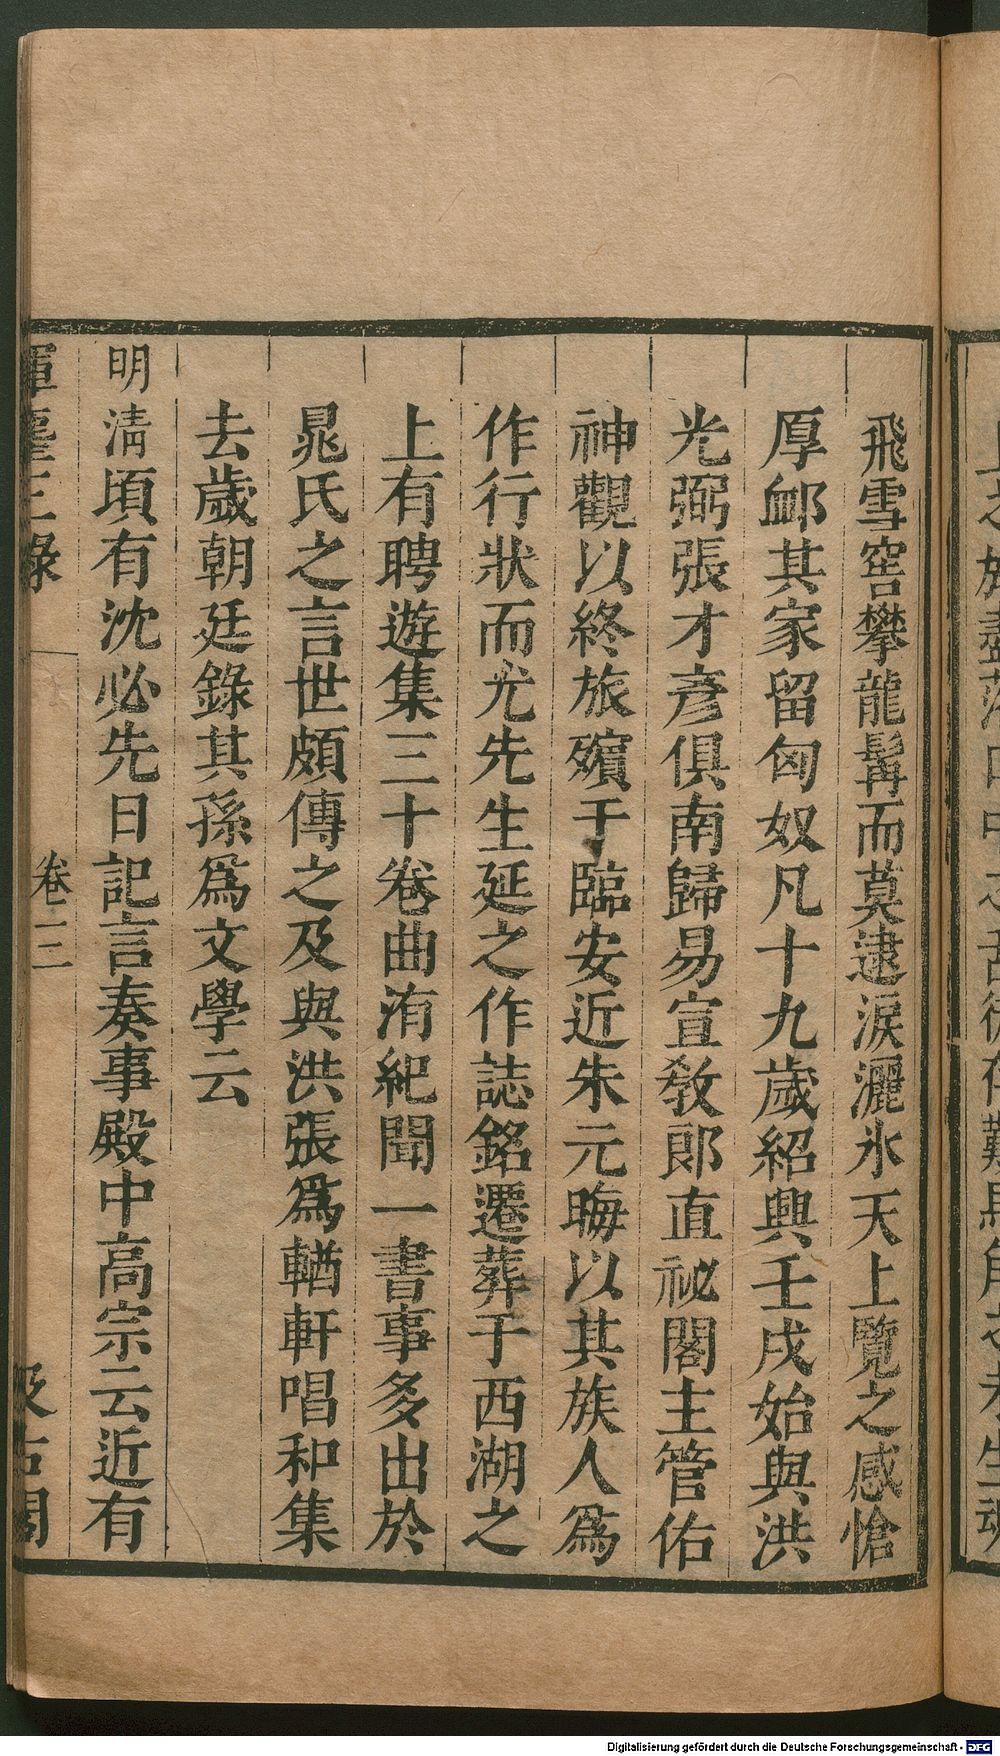 飛雪窖攀龍髯而莫逮淚灑氷天上覽之感愴
厚卹其家留匈奴凡十九歲紹興壬戌始與洪
光弼張才彥俱南歸易宣敎郎直祕閣主管佑
神觀以終旅殯于臨安近朱元晦以其族人爲
作行狀而尤先生延之作誌銘遷葬于西湖之
上有聘遊集三十卷曲洧紀聞一書事多出於
晁氏之言世頗傳之及與洪張爲輶軒唱和集
去歲朝廷錄其孫爲文學云
明淸頃有沈必先日記言奏事殿中高宗云近有
揮麈三錄 卷三 汲古閣
Digitalisierung gefördert durch die Deutsche Forschungsgemeinschaft - DFG